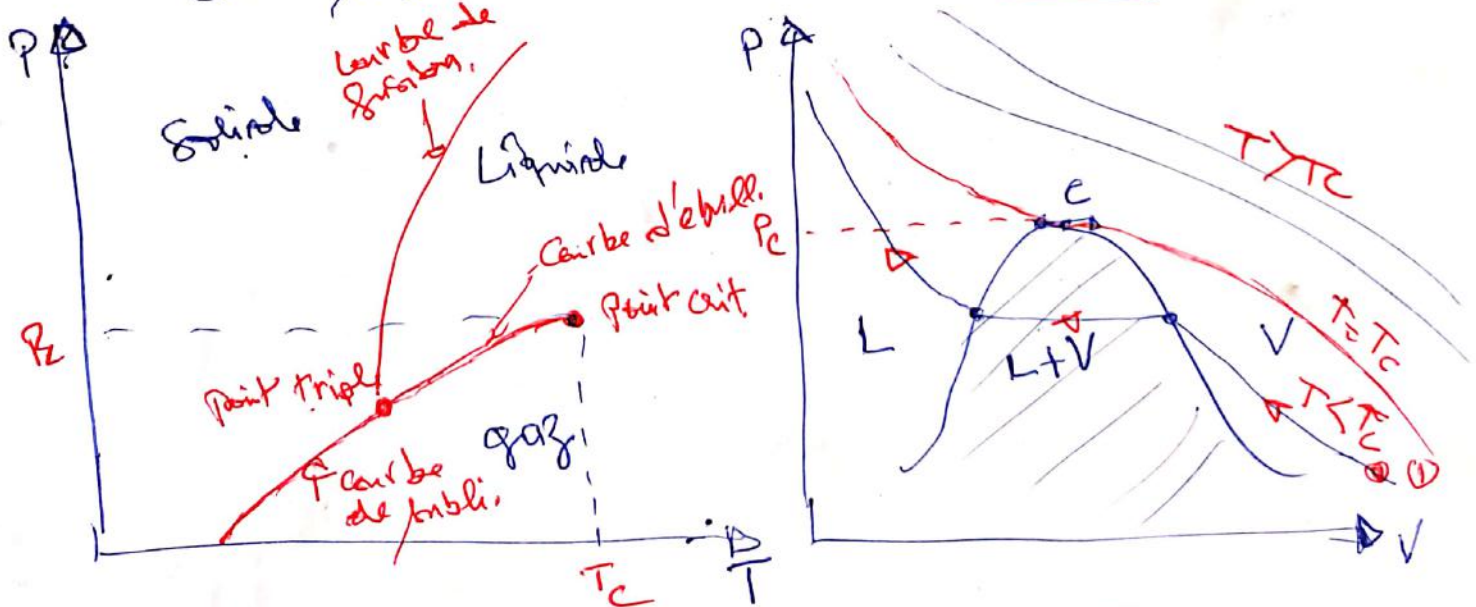 P
Courbe de
fusion.
Solide
Liquide
Courbe d'ebull.
Point crit.
Pc
Point triple
gaz
courbe
de subli.
Tc
T
P
T>Tc
C
Pc
L
L+V
V
T=Tc
T<Tc
①
V